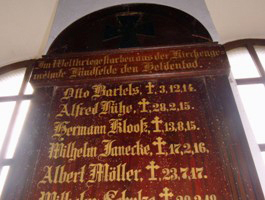 Im Weltkriege starben aus der Kirchenge-
meinde Lindfelde den Heldentod.
Otto Bartels, ✝ 3.12.14.
Alfred Füho, ✝ 28.2.15.
Hermann Klooß, ✝ 13.8.15.
Wilhelm Janecke, ✝ 17.2.16.
Albert Möller, ✝ 23.7.17.
Wilhelm